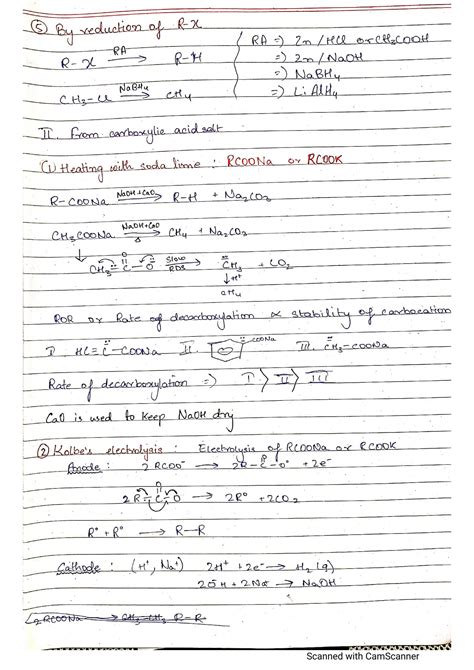 ⑤ By reduction of R-X
R-X —RA→ R-H
RA ⇒ Zn/HCl or CH3COOH
⇒ Zn/NaOH
CH3-Cl —NaBH4→ CH4
⇒ NaBH4
⇒ LiAlH4
II. From carboxylic acid salt
(1) Heating with soda lime : RCOONa or RCOOK
R-COONa —NaOH+CaO→ R-H + Na2CO3
CH3COONa —NaOH+CaO, Δ→ CH4 + Na2CO3
↓ CH3-C(=O)-O —Slow RDS→ CH3 + CO2
↓H+
CH4
ROR or Rate of decarboxylation ∝ stability of carbocation
I. HC≡C-COONa II. COONa III. CH3-COONa
Rate of decarboxylation ⇒ I > II > III
CaO is used to keep NaOH dry
② Kolbe's electrolysis : Electrolysis of RCOONa or RCOOK
Anode : 2RCOO- → 2R-C(=O)-O° + 2e-
2R-C(=O)-O → 2R° + 2CO2
R° + R° → R-R
Cathode : (H+, Na+) 2H+ + 2e- → H2(g)
2OH + 2Na → NaOH
2RCOONa → CH3-CH3 R-R
Scanned with CamScanner